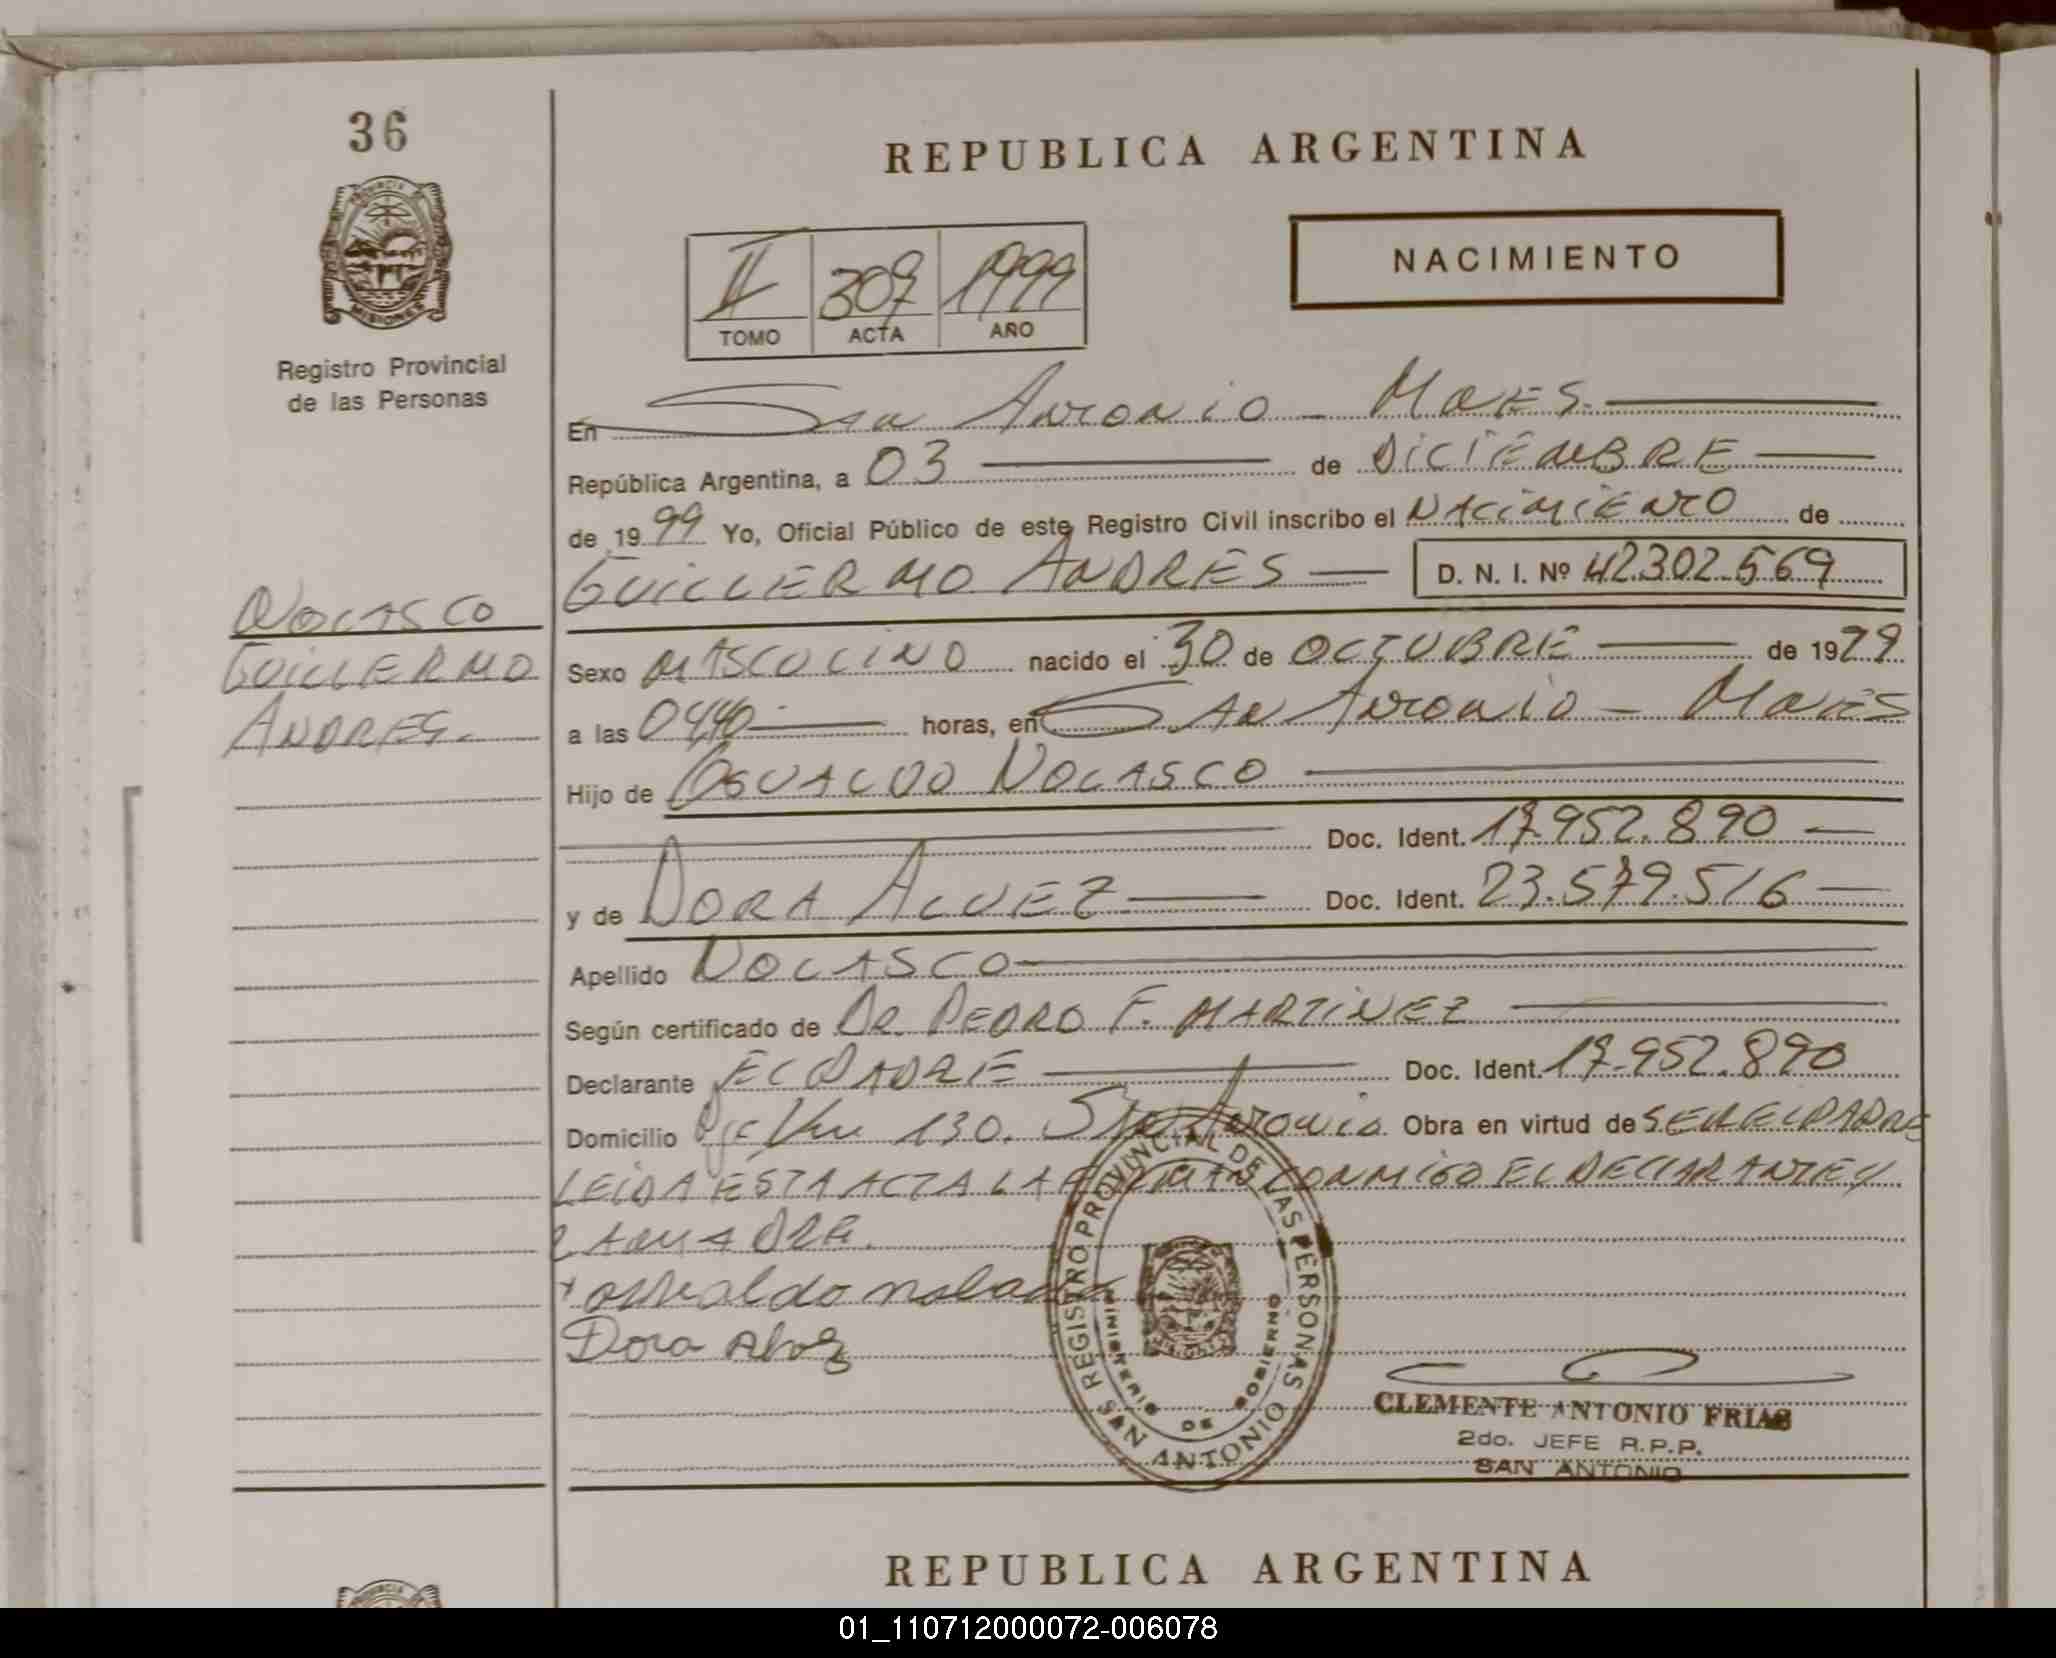 36
REPUBLICA ARGENTINA
PROVINCIA
MISIONES
II 309 1999
TOMO ACTA AÑO
NACIMIENTO
Registro Provincial
de las Personas
En San Antonio - Mnes.
República Argentina, a 03 de DICIEMBRE
de 1999 Yo, Oficial Público de este Registro Civil inscribo el NACIMIENTO de
GUILLERMO ANDRES D. N. I. Nº 42.302.569
NOLASCO
GUILLERMO
ANDRES.
Sexo MASCULINO nacido el 30 de OCTUBRE de 1999
a las 0440 horas, en San Antonio - Mnes
Hijo de OSVALDO NOLASCO
Doc. Ident. 17.952.890
y de DORA ALVEZ Doc. Ident. 23.579.516
Apellido NOLASCO
Según certificado de DR. PEDRO F. MARTINEZ
Declarante EL PADRE Doc. Ident. 17.952.890
Domicilio Km 130. San Antonio Obra en virtud de SER EL PADRE
LEIDA ESTA ACTA LA FIRMAN CONMIGO EL DECLARANTE Y
LA MADRE.
+ osvaldo nolasco
Dora Alvez
REGISTRO PROVINCIAL DE LAS PERSONAS
MINISTERIO DE GOBIERNO
SAN ANTONIO
CLEMENTE ANTONIO FRIAS
2do. JEFE R.P.P.
SAN ANTONIO
REPUBLICA ARGENTINA
01_110712000072-006078